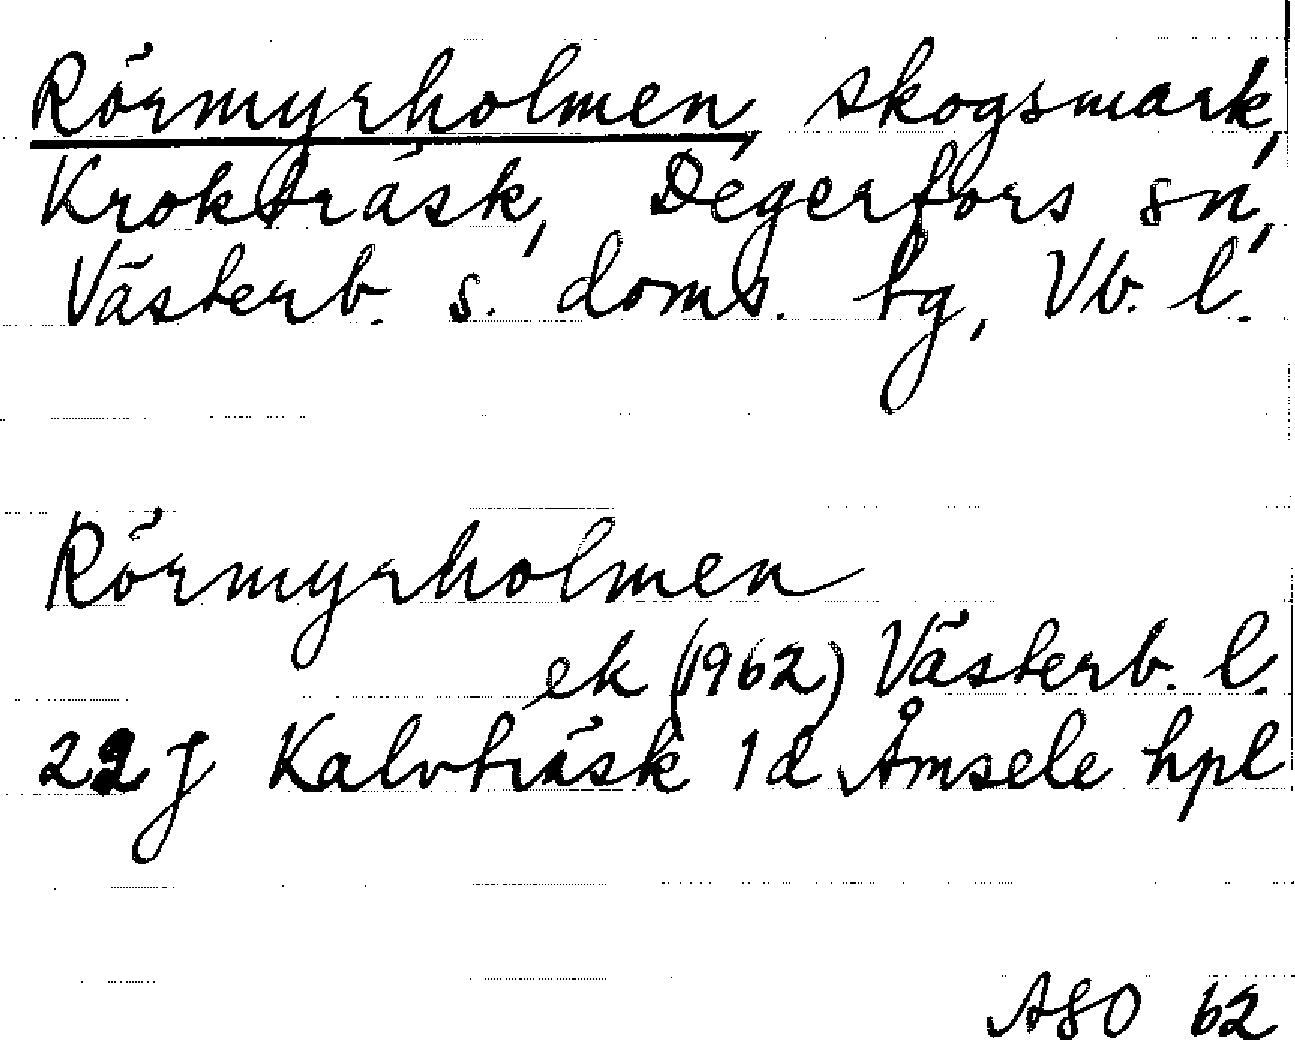 Rörmyrholmen, skogsmark,
Krokträsk, Degerfors sn,
Västerb. s. doms. tg, Vb. l.
Rörmyrholmen
ek (1962) Västerb. l.
22 J Kalvträsk 1d Åmsele hpl
ASO 62